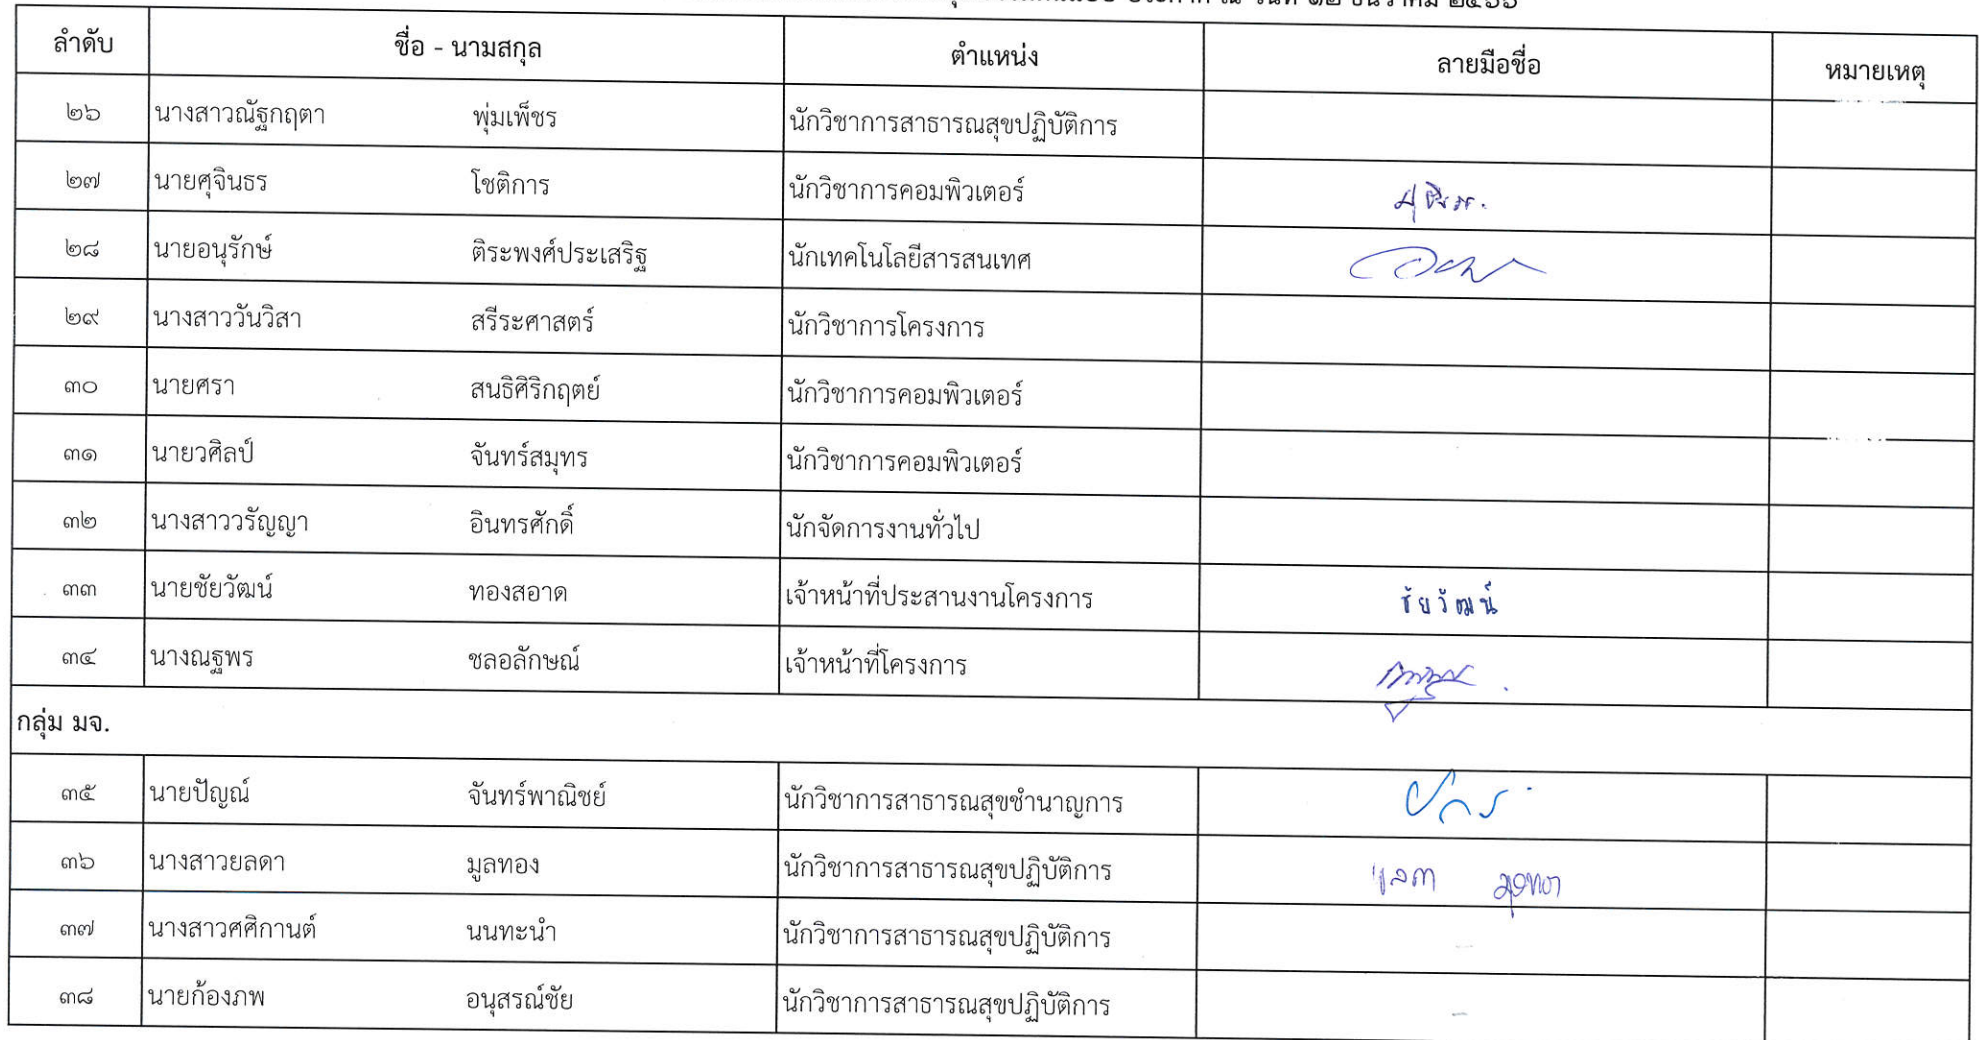 ณ วันที่ ๑๒ ธันวาคม ๒๕๖๖
ลำดับ ชื่อ - นามสกุล ตำแหน่ง ลายมือชื่อ หมายเหตุ
๒๖ นางสาวณัฐกฤตา พุ่มเพ็ชร นักวิชาการสาธารณสุขปฏิบัติการ
๒๗ นายศุจินธร โชติการ นักวิชาการคอมพิวเตอร์
๒๘ นายอนุรักษ์ ติระพงศ์ประเสริฐ นักเทคโนโลยีสารสนเทศ
๒๙ นางสาววันวิสา สรีระศาสตร์ นักวิชาการโครงการ
๓๐ นายศรา สนธิศิริกฤตย์ นักวิชาการคอมพิวเตอร์
๓๑ นายวศิลป์ จันทร์สมุทร นักวิชาการคอมพิวเตอร์
๓๒ นางสาววรัญญา อินทรศักดิ์ นักจัดการงานทั่วไป
๓๓ นายชัยวัฒน์ ทองสอาด เจ้าหน้าที่ประสานงานโครงการ ชัยวัฒน์
๓๔ นางณฐพร ชลอลักษณ์ เจ้าหน้าที่โครงการ
กลุ่ม มจ.
๓๕ นายปัญณ์ จันทร์พาณิชย์ นักวิชาการสาธารณสุขชำนาญการ
๓๖ นางสาวยลดา มูลทอง นักวิชาการสาธารณสุขปฏิบัติการ ยลดา มูลทอง
๓๗ นางสาวศศิกานต์ นนทะนำ นักวิชาการสาธารณสุขปฏิบัติการ
๓๘ นายก้องภพ อนุสรณ์ชัย นักวิชาการสาธารณสุขปฏิบัติการ